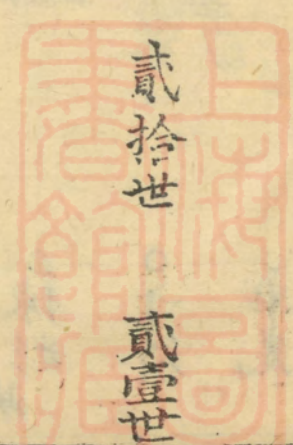 貳拾世
貳壹世
上海圖
書館藏